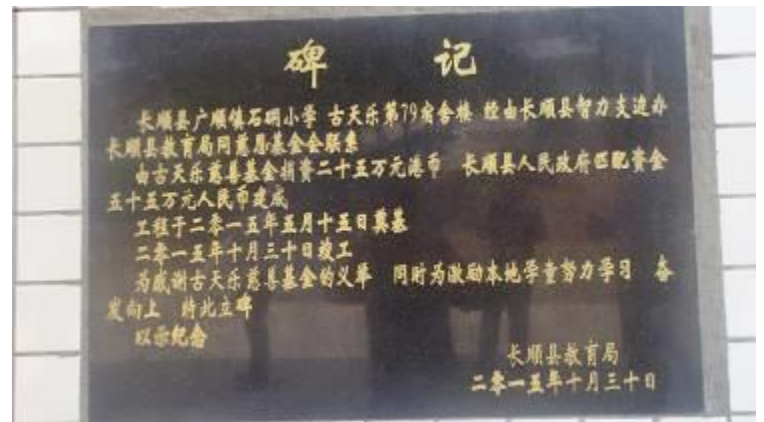 碑 记
长顺县广顺镇石硐小学 古天乐第79宿舍楼 经由长顺县智力支边办
长顺县教育局同慈恩基金会联系
由古天乐慈善基金捐资二十五万元港币 长顺县人民政府匹配资金
五十五万元人民币建成
工程于二零一五年五月十五日奠基
二零一五年十月三十日竣工
为感谢古天乐慈善基金的义举 同时为激励本地学童努力学习 奋
发向上 特此立碑
以示纪念
长顺县教育局
二零一五年十月三十日